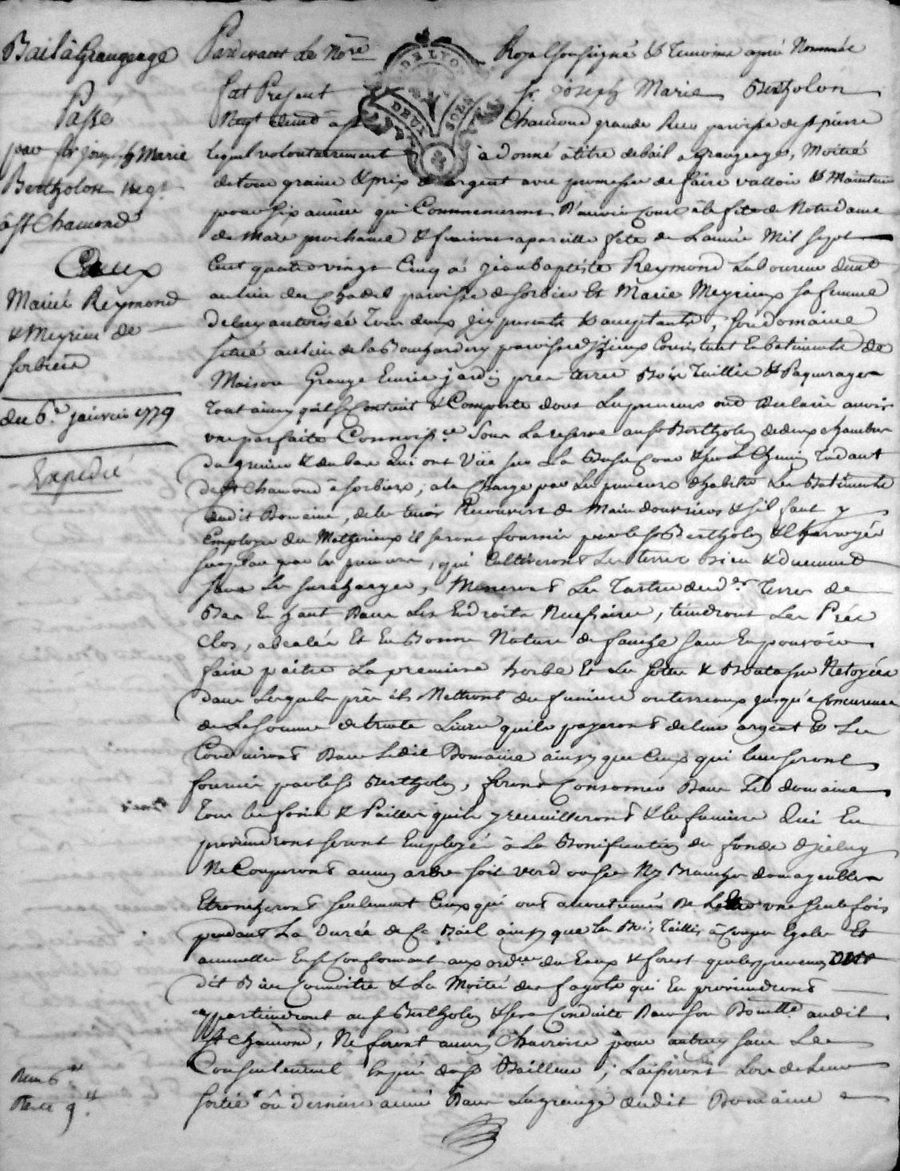 Bail à Grangeage
Passé
par Sr Joseph Marie
Bertholon neg.t
à St Chamond
à Ceux
Mariés Reymond
& Meyrieu de
Sorbiers
du 6.e janvier 1779
Expedié
Pardevant le No.re Royal soussigné & temoins apres Nommés
DE LYON
DEUX SOLS
fut Present Sr Joseph Marie Bertholon
Negt demt à St Chamond grande Rue paroisse de st pierre
lequel volontairement à donné à titre de bail à Grangeage, Moitié
de tous grains & prix d'argent avec promesse de faire valloir & Maintenir
pour six années qui Commenceront d'avoir Cours à la fete de Notredame
de Mars prochaine & finiront à pareille fete de L'année Mil sept
Cent quatre vingt Cinq à jean Baptiste Reymond Laboureur demt
au lieu du paroisse de Sorbiers Et Marie Meyrieux sa femme
de luy autorisée tous deux icy presents & acceptants, Son domaine
situé au lieu de la paroisse d' Consistant En batiments de
Maison Grange Ecurie jardin prés terres Bois Taillis & Paquerages
Tout ainsy qu'il se Contient & Comporte dont Les preneurs ont declaré avoir
une parfaite Connoiss.ce Sous La reserve au Sr Bertholon de deux chambres
du grenier & du bas qui ont Vüe sur La Basse Cour & sur Le Chemin Tendant
de St Chamond à Sorbiers; à la Charge par Les preneurs d'habiter Les Batiments
dudit Domaine, de les tenir Recouverts de Main d'ouvriers & s'il faut y
Employer des Matheriaux ils seront fournis par led. Sr Bertholon & charroyés
sur place par les preneurs, qui Cultiveront Les terres bien & duement
sans Les surcharger, Meneront Les Tertres desd.es Terres de
Bas En haut dans Les Endroits Necessaires, tiendront Les Prés
Clos, Et En Bonne Nature de fauche sans En pouvoir
faire paitre La premiere herbe Et Les & Nétoyées
dans Lesquels prés ils Mettront des fumiers ou terreaux jusqu'à Concurrence
de La somme de trente Livres qu'ils payeront de leur argent & Les
Conduiront dans Ledit Domaine ainsy que Ceux qui leur seront
fournis par led. Sr Bertholon, feront Consommer dans Led domaine
Tous les foins & Pailles qu'ils y recueilleront & les fumiers qui En
proviendront seront Employés à La Bonification du fonds d'iceluy
Ne Couperont aucun arbre soit verd ou sec Ny Branches domageables
Etronçheront seulement Ceux qui ont accoutumés de L'Etre une seule fois
pendant La Durée de Ce Bail ainsy que les Bois Taillis à Couper Egale Et
annuelle En se Conformant aux ord.ces des Eaux & forest que les preneurs ont
dit Bien Connoitre & La Moitié des fagots qui En proviendront
appartiendront au Sr Bertholon & sera Conduite dans son Domlle audit
St Chamond, Ne feront aucun Charroir pour autruy sans Le
Consentement Exprés dud. Sr Bailleur; Laisseront Lors de Leur
sortie ou derniere année dans La grange dudit Domaine